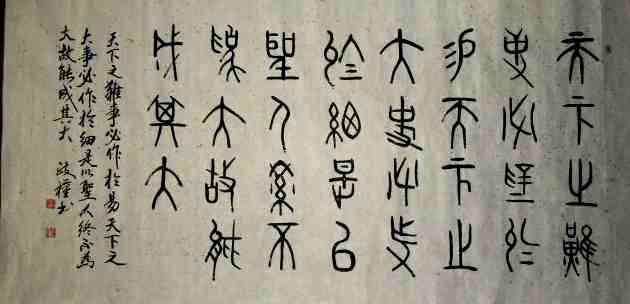 天下之難
事必作於
易天下之
大事必作
於細是以
聖人終不
為大故能
成其大
天下之難事必作於易天下之
大事必作於細是以聖人終不為
大故能成其大 书